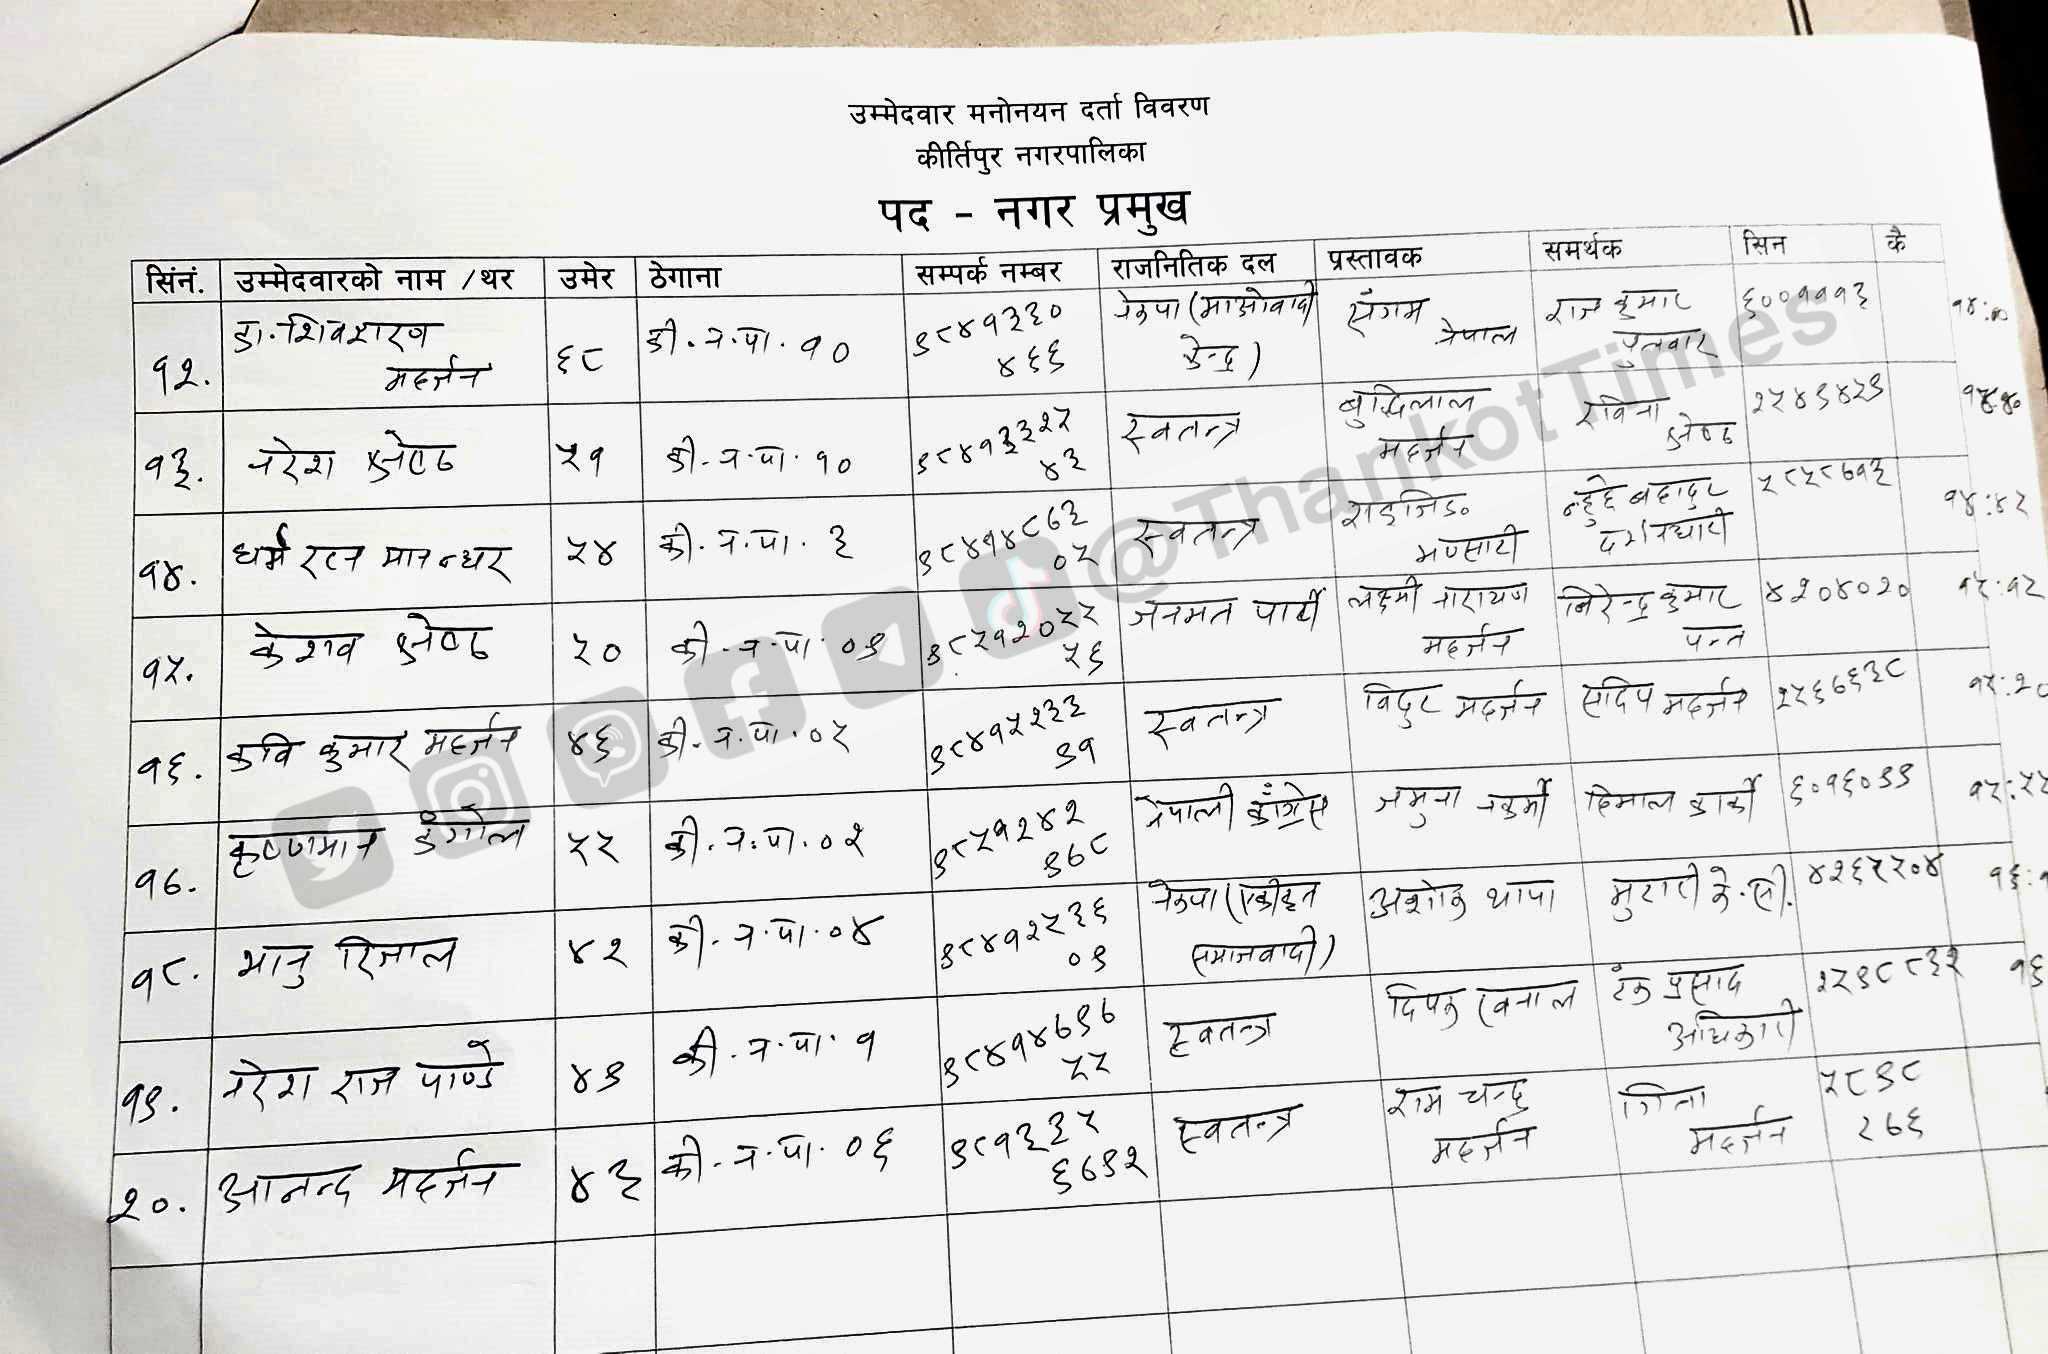 उम्मेदवार मनोनयन दर्ता विवरण
कीर्तिपुर नगरपालिका
पद - नगर प्रमुख
सिंनं. उम्मेदवारको नाम /थर उमेर ठेगाना सम्पर्क नम्बर राजनितिक दल प्रस्तावक समर्थक सिन कै
१२. डा. शिवशरण महर्जन ६८ की. न. पा. १० ९८४१३३० ४६६ नेकपा (माओवादी केन्द्र) संगम नेपाल राज कुमार पुलवार ६००१११३
१३. नरेश श्रेष्ठ ५१ की. न. पा. १० ९८४१३३२५ ४३ स्वतन्त्र बुद्धिलाल महर्जन रविना श्रेष्ठ २५४९४२९
१४. धर्म रत्न मानन्धर ५४ की. न. पा. ३ ९८४१४८७३ ०५ स्वतन्त्र न्हुछे बहादुर ५८५८७१३ १५:४२
१५. केशव श्रेष्ठ ५० की. न. पा. ०९ ९८५१२०५५ ५६ जनमत पार्टी लक्ष्मी नारायण महर्जन विरेन्द्र कुमार पन्त ४२०४०२० १५:१५
१६. कवि कुमार महर्जन ४६ की. न. पा. ०५ ९८४१५२३३ ९१ स्वतन्त्र विदुर महर्जन संदिप महर्जन २५६७६३८
१७. कृष्णमान डंगोल ५५ की. न. पा. ०२ ९८५१२४२ ९७८ नेपाली काँग्रेस जमुना नकर्मी हिमाल कार्की ६०१६०९९ १५:५५
१८. भानु रिजाल ४२ की. न. पा. ०४ ९८४१२५३६ ०९ नेकपा (एकीकृत समाजवादी) अशोक थापा मुरारी के. सी. ४२६५२०४
१९. नरेश राज पाण्डे ४९ की. न. पा. १ ९८४१४७९७ ५५ स्वतन्त्र दिपक खनाल टंक प्रसाद अधिकारी २५९८८३२
२०. आनन्द महर्जन ४३ की. न. पा. ०६ ९८१३३५ ६७९२ स्वतन्त्र राम चन्द्र महर्जन गिता महर्जन ५८९८ २७६
@ThankotTimes